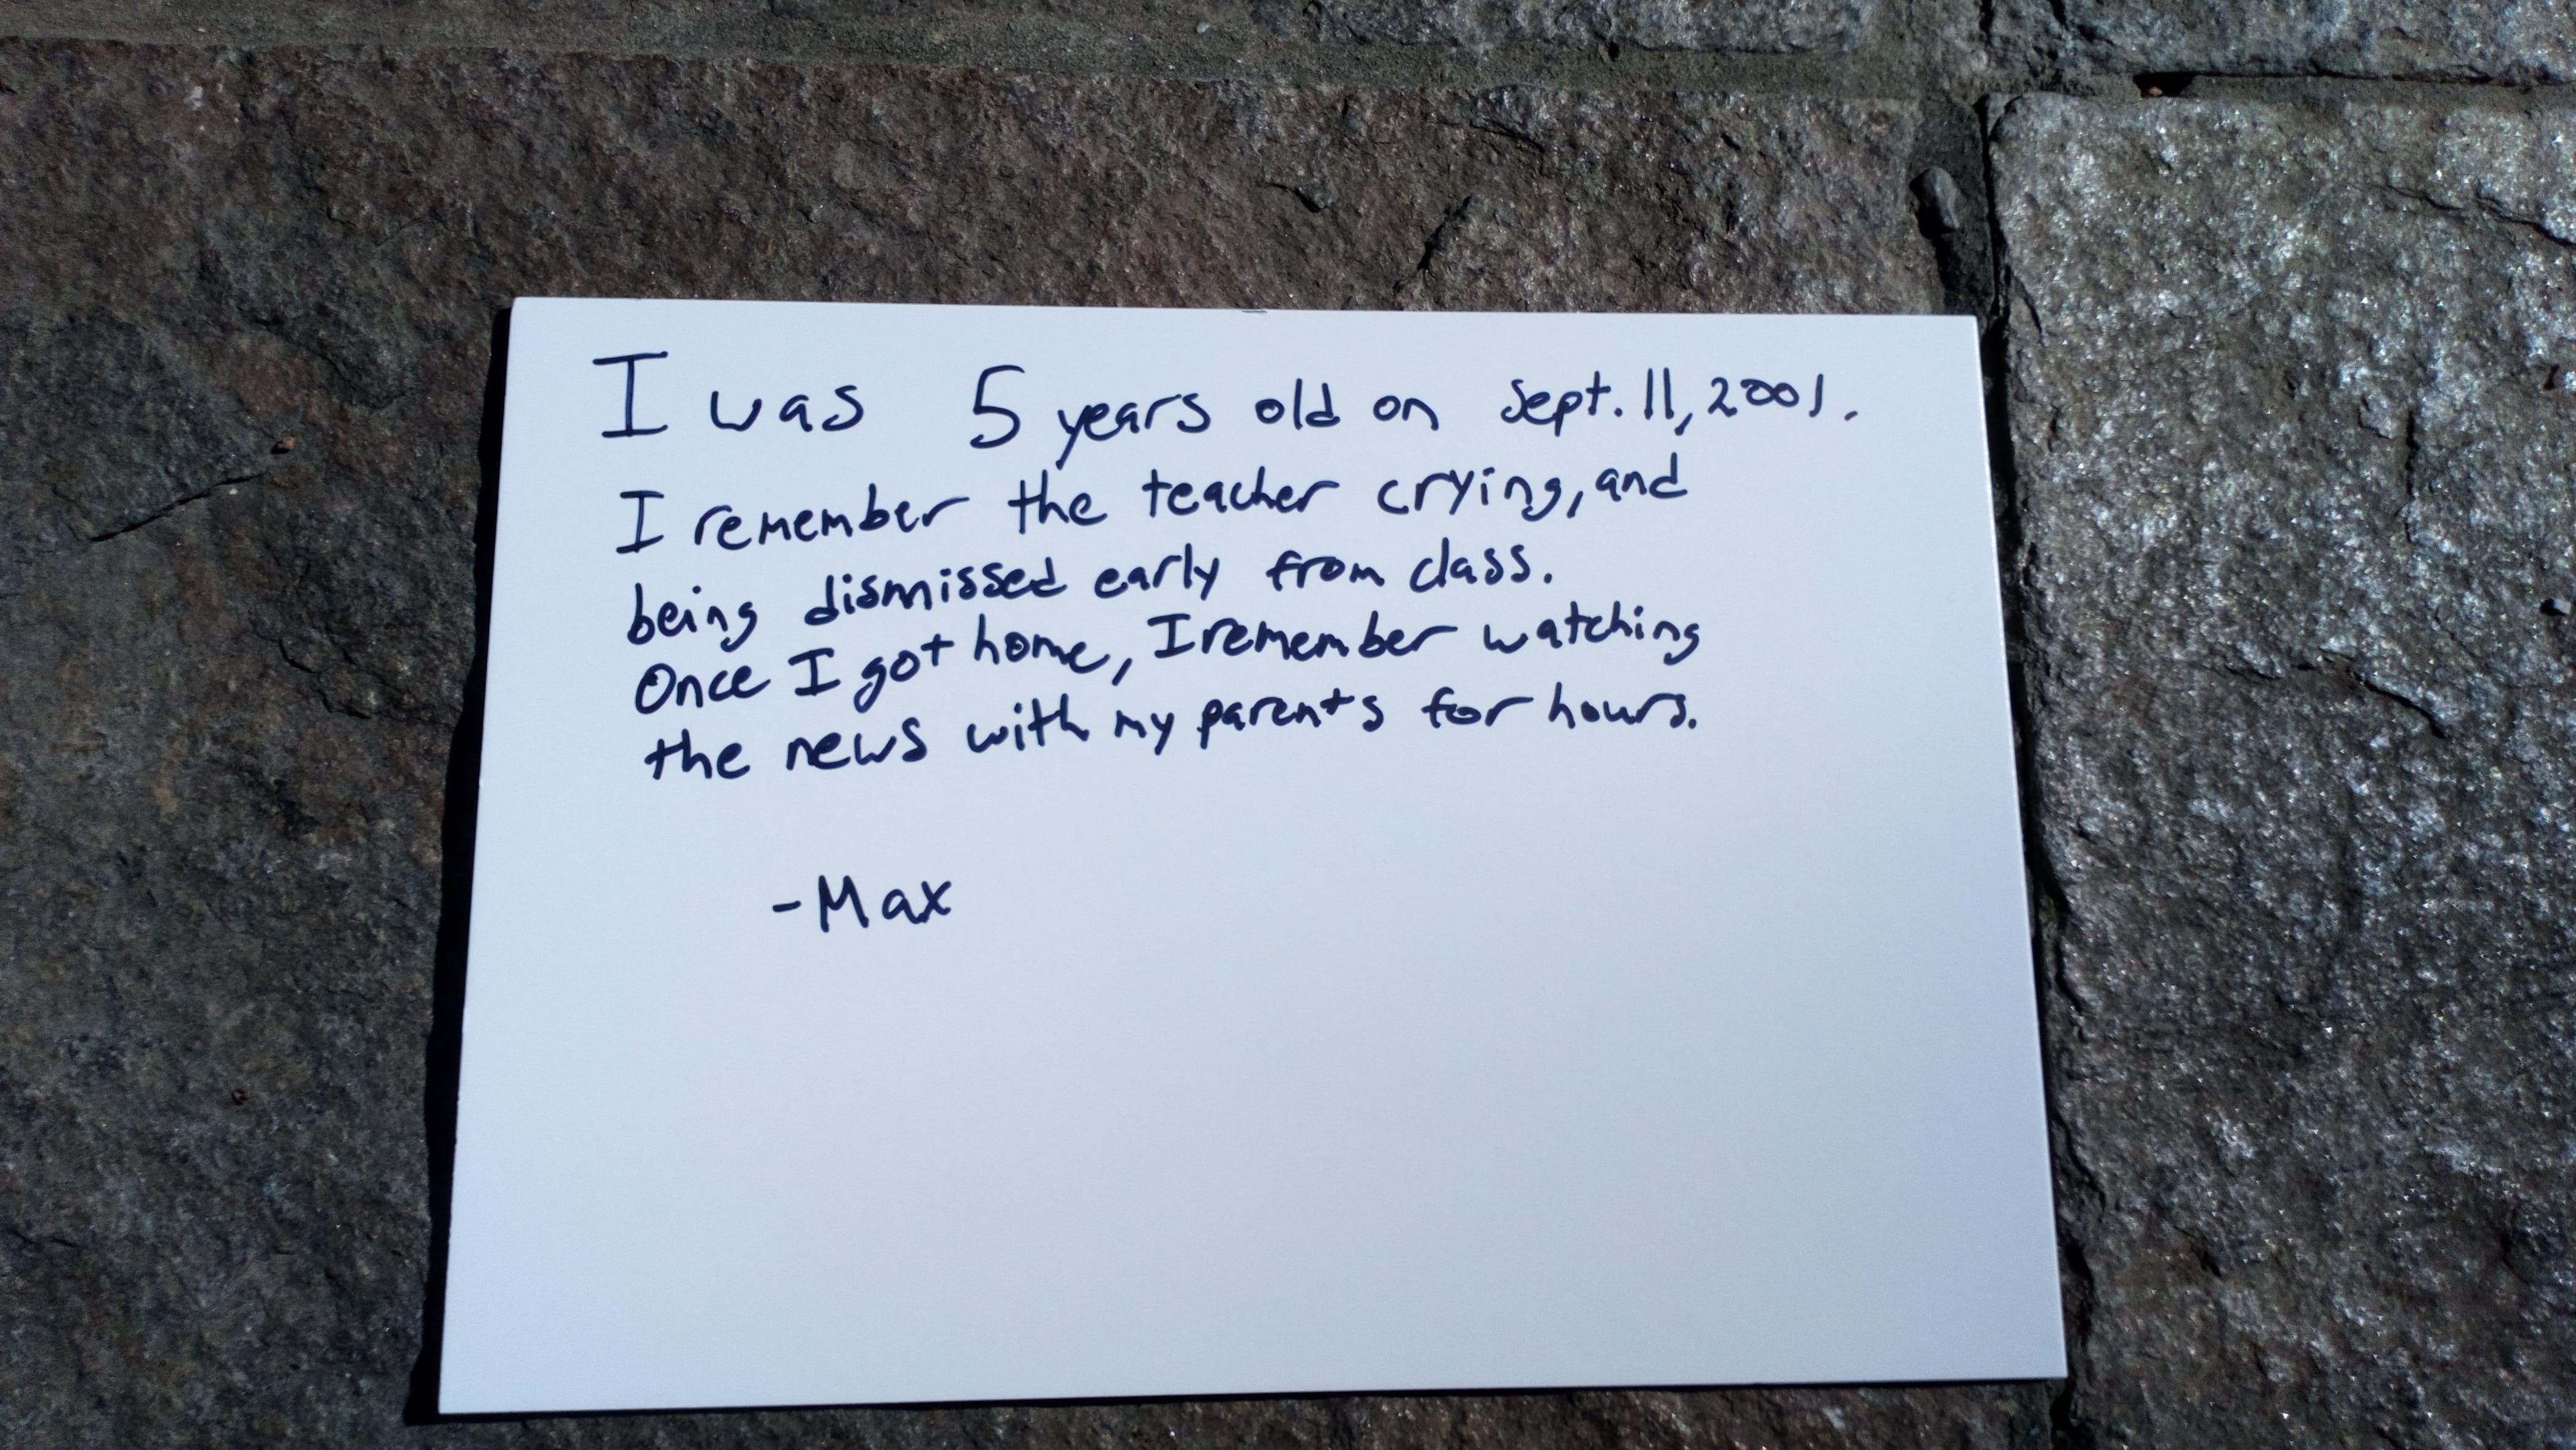 I was 5 years old on Sept. 11, 2001.
I remember the teacher crying, and
being dismissed early from class.
Once I got home, I remember watching
the news with my parents for hours.
-Max